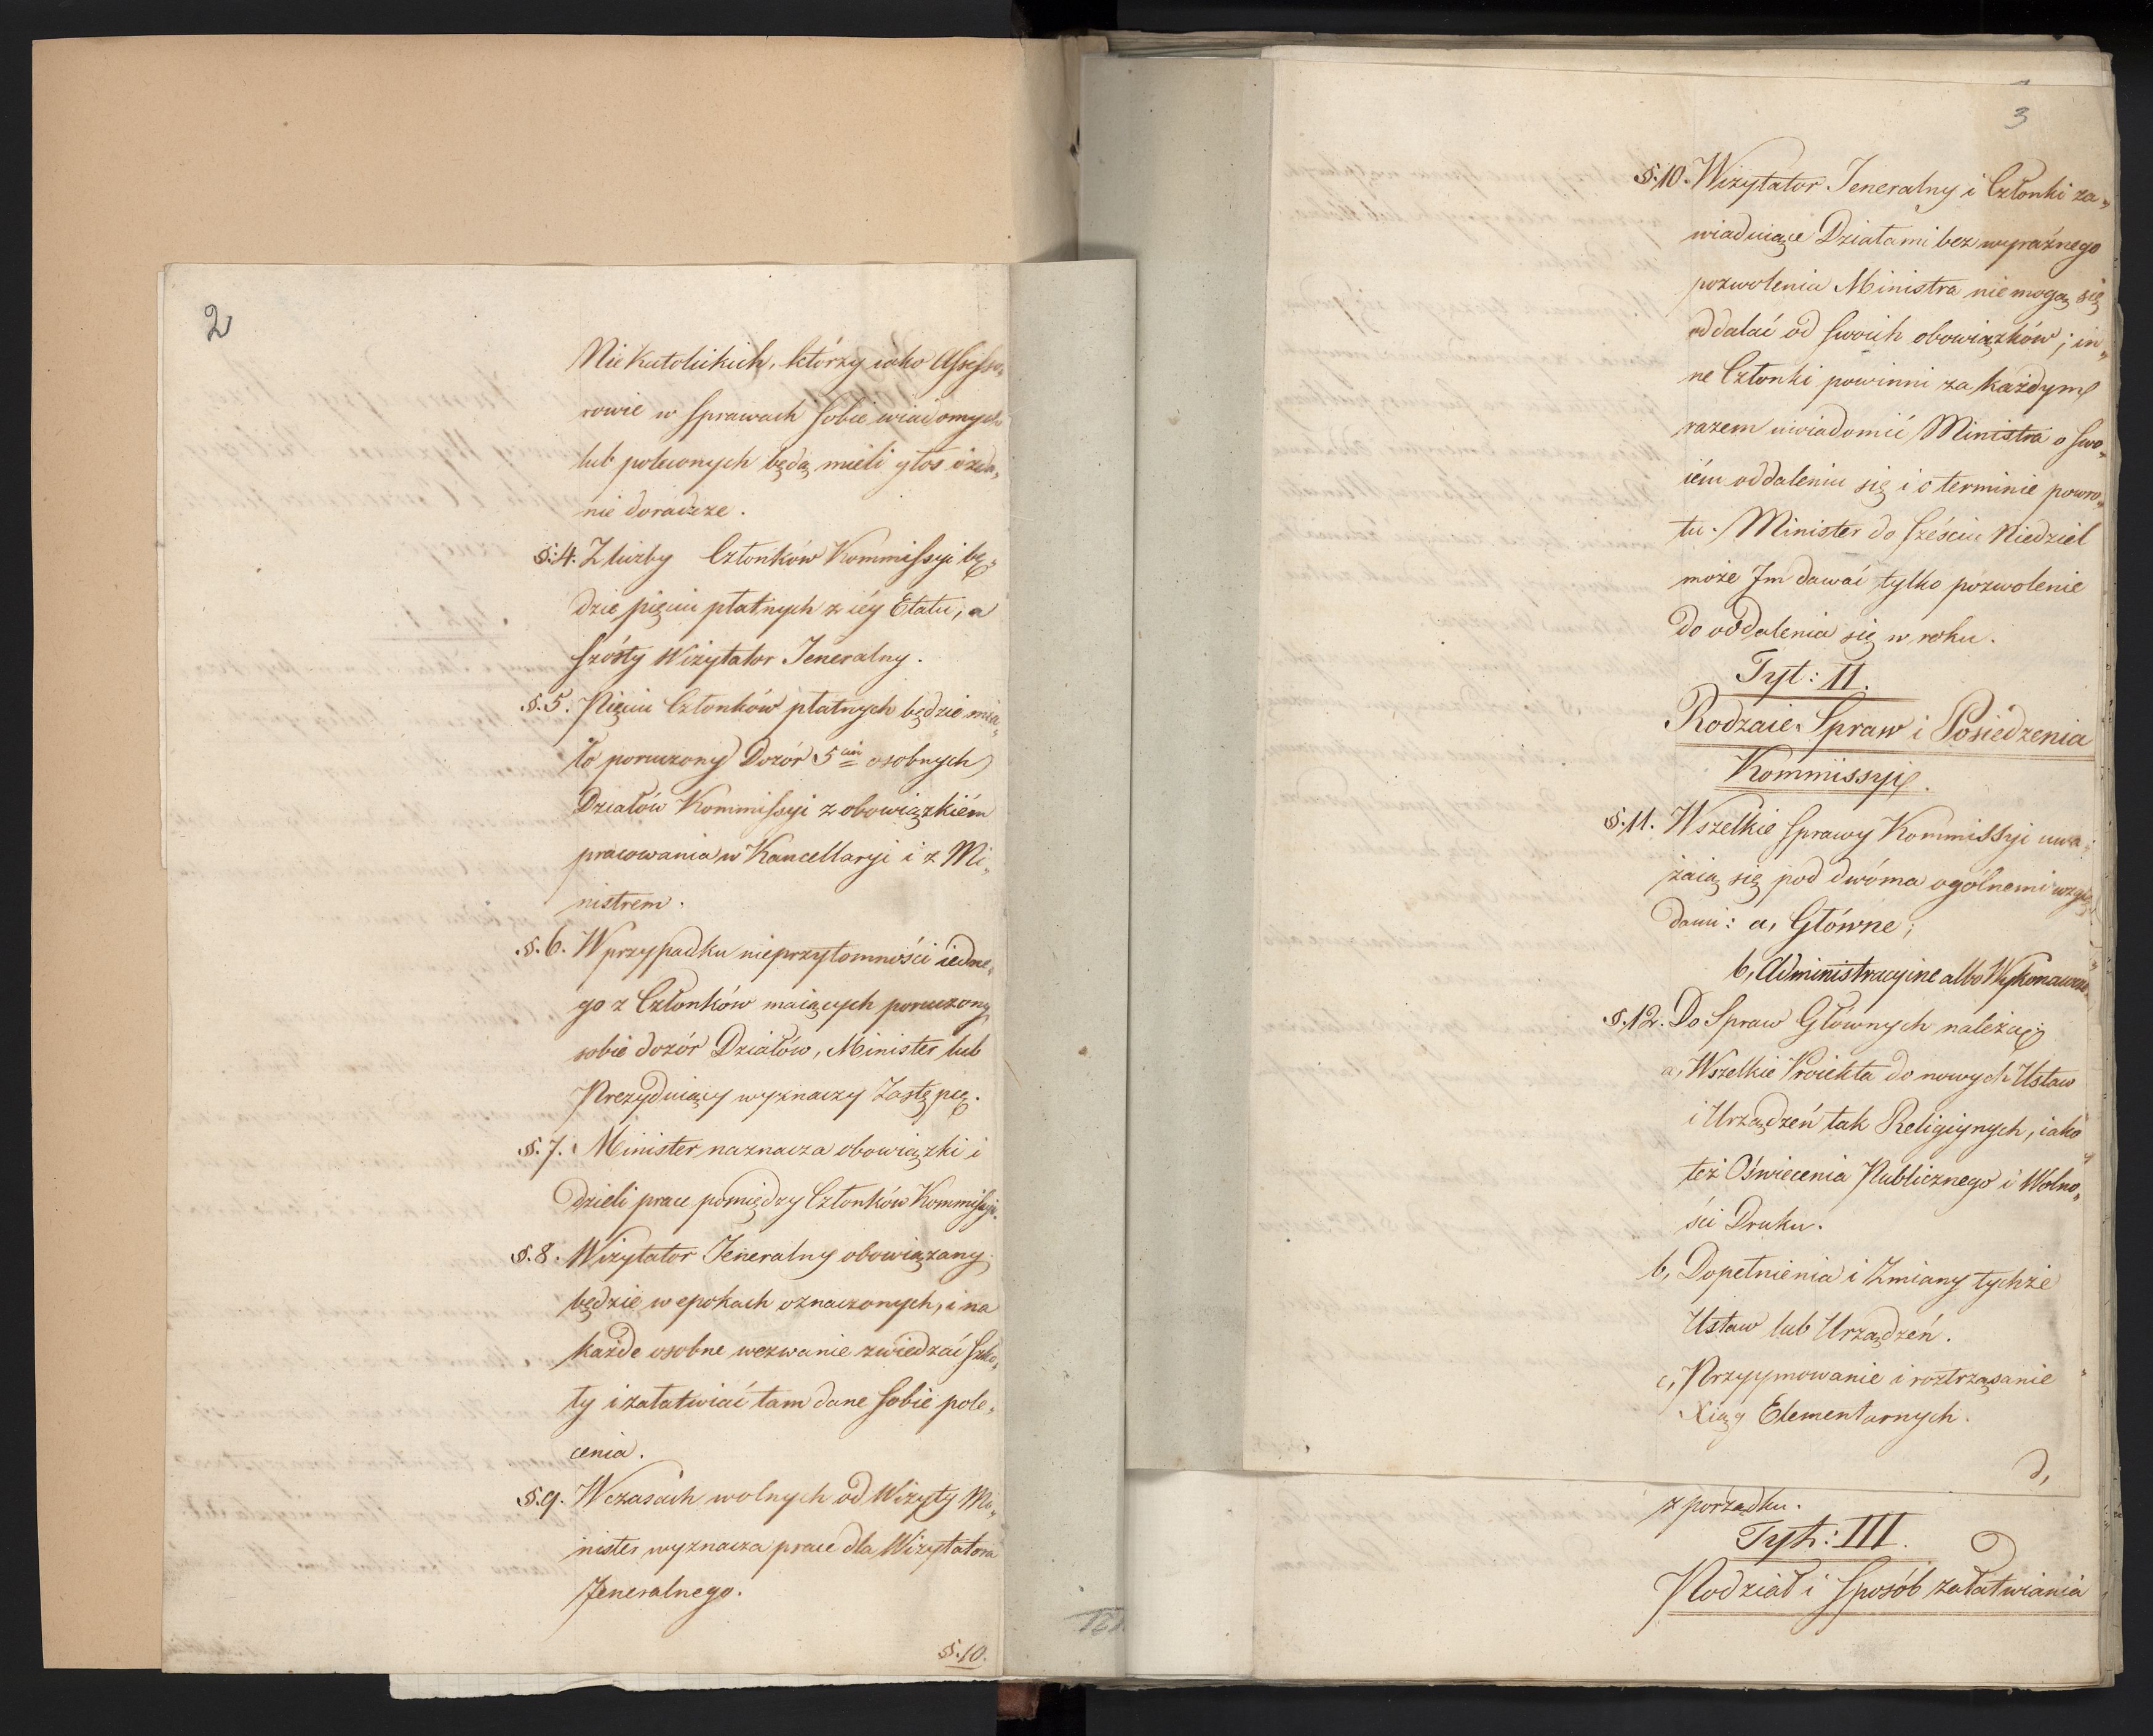 2
Nie Katolickich, którzy iako Assesso„
rowie w sprawach sobie wiadomych
lub poleconych będą mieli głos i zda„
nie doradcze.
§.4. Z liczby Członków Kommissyi bę„
dzie pięciu płatnych z iéy Etatu, a
szósty Wizytator Jeneralny.
§.5. Pięciu Członków płatnych będzie mia„
ło poruczony Dozór 5ciu osobnych
Działów Kommissyi z obowiązkiém
pracowania w Kancellaryi i z Mi„
nistrem.
§.6. W przypadku nieprzytomności iedne„
go z Członków maiących poruczony
sobie dozór Działów, Minister lub
Prezyduiący wyznaczy Zastępcę.
§.7. Minister naznacza obowiązki i
dzieli prace pomiędzy Członków Kommissyi.
§.8. Wizytator Jeneralny obowiązany
będzie w epokach oznaczonych, i na
każde osobne wezwanie zwiedzać szko„
ły i załatwiać tam dane sobie pole„
cenia.
§.9. W czasach wolnych od Wizyty Mi„
nister wyznacza prace dla Wizytatora
Jeneralnego.
§.10.
3
§.10. Wizytator Jeneralny i Członki za„
wiaduiące Działami bez wyraźnego
pozwolenia Ministra nie mogą się
oddalać od swoich obowiązków; in„
ne Członki powinni za każdym
razem uwiadomić Ministra o swo„
iém oddaleniu się i o terminie powro„
tu. Minister do sześciu Niedziel
może Im dawać tylko pozwolenie
do oddalenia się w roku.
Tyt: II.
Rodzaie Spraw i Posiedzenia
Kommissyi.
§.11. Wszelkie sprawy Kommissyi uwa„
żaią się pod dwóma ogólnemi wzglę„
dami: a, Główne;
b, Administracyine albo Wykonawcze.
§.12. Do Spraw Głównych należą
a, Wszelkie Proiekta do nowych Ustaw
i Urządzeń tak Religiynych, iako
też Oświecenia Publicznego i Wolno„
ści Druku.
b, Dopełnienia i Zmiany tychże
Ustaw lub Urządzeń.
c, Przyymowanie i roztrząsanie
Xiąg Elementarnych.
d,
z porządku.
Tyt: III.
Podział i sposób załatwiania